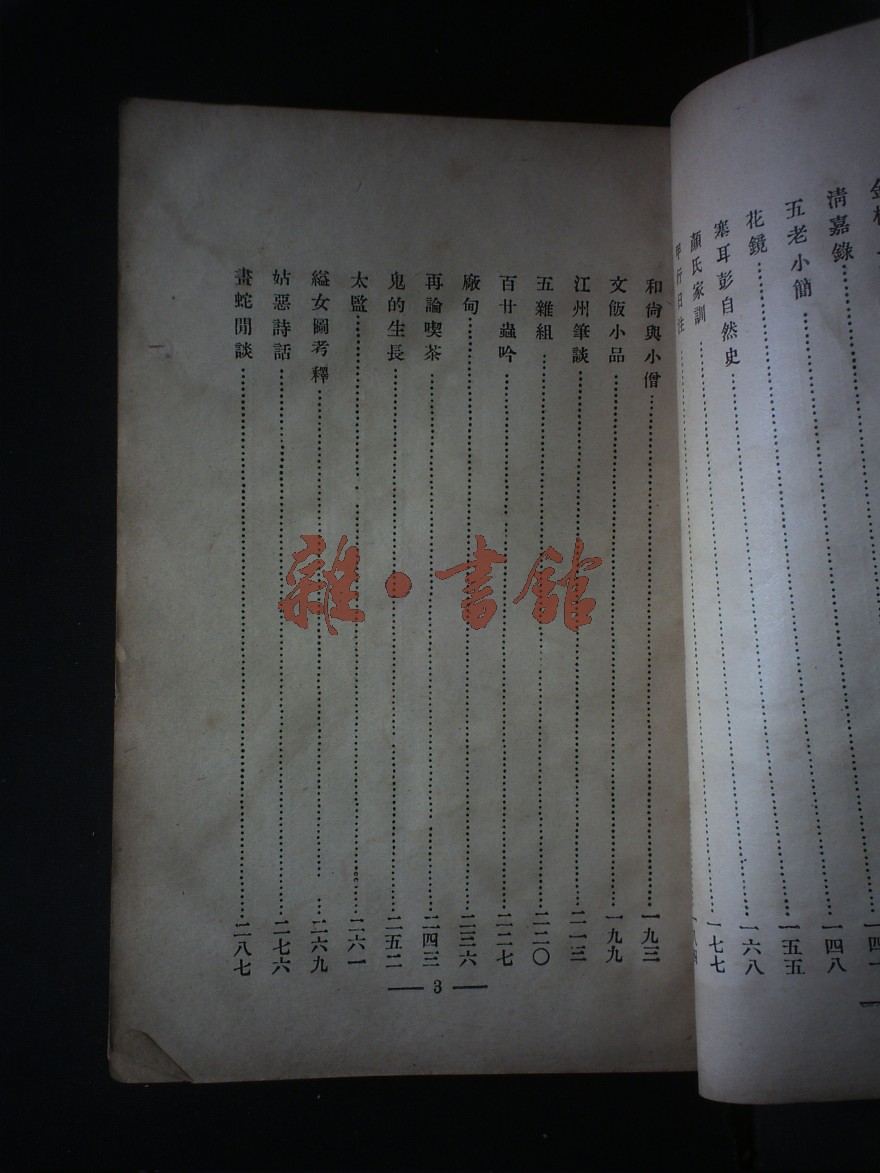 清嘉錄 一四八
五老小簡 一五五
花鏡 一六八
塞耳彭自然史
顏氏家訓 一七七
甲行日注 一八四
和尙與小僧 一九三
文飯小品 一九九
江州筆談 二一三
五雜組 二二〇
百廿蟲吟 二二七
廠甸 二三六
再論喫茶 二四三
鬼的生長 二五二
太監 二六一
縊女圖考釋 二六九
姑惡詩話 二七六
畫蛇閒談 二八七
— 3 —
雜·書館